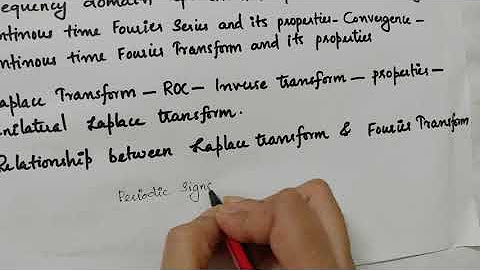 equency domain
ntinous time Fourier Series and its properties - Convergence -
ntinous time Fourier Transform and its properties
aplace Transform - ROC - Inverse transform - properties -
nilateral Laplace transform.
Relationship between Laplace transform & Fourier Transform
Periodic Signa